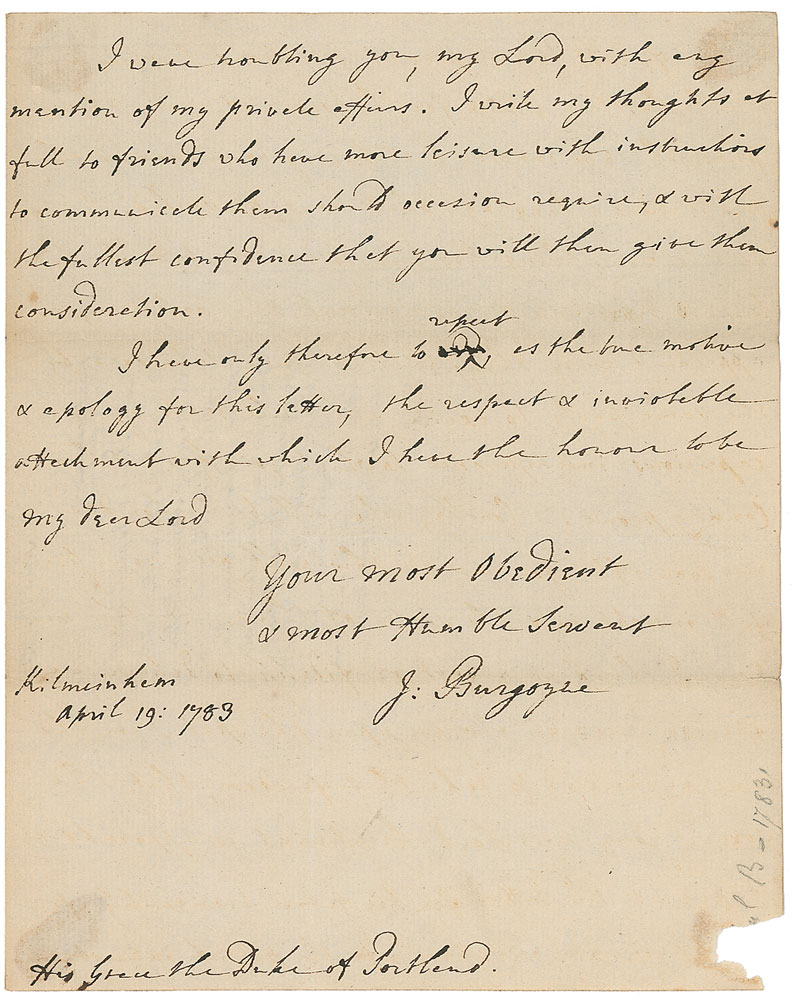 I wave troubling you, my Lord, with any
mention of my private affairs. I write my thoughts at
full to friends who have more leisure with instructions
to communicate them should occasion require, & with
the fullest confidence that you will then give them
consideration.
repeat
I have only therefore to , as the true motive
& apology for this letter, the respect & inviolable
attachment with which I have the honour to be
my dear Lord
Your most Obedient
& most Humble Servant
J: Burgoyne
Kilmainham
April 19: 1783
B = 1783
His Grace the Duke of Portland.